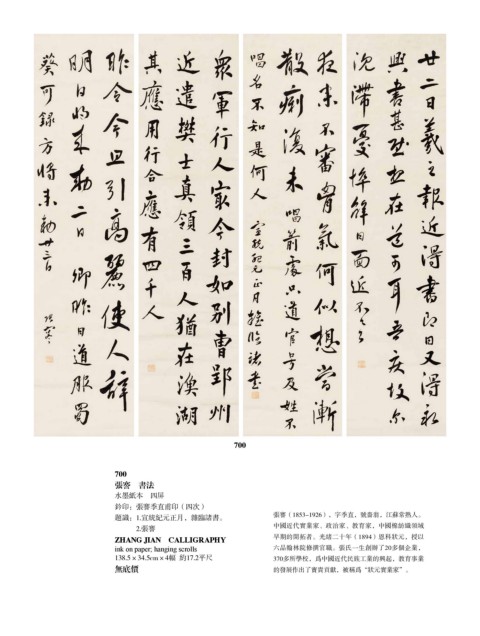 廿二日羲之報近得書即日又得永
興書甚慰想在道可耳吾疾故尔
沈滯憂悴解日面近不久
未不審胃氣何似想嘗漸
散痢復未 唱前處只道官号及姓不
唱名不知是何人 宣統紀元正月 臨諸書
衆軍行人家令封如別曹郢州
近遣樊士真領三百人猶在漢湖
其應用行合應有四千人
昨令今且引高麗使人辞
明日 来敕二日 卿昨日道服蜀
葵可録方將来敕廿三日 張謇
700
700
張謇 書法
水墨紙本 四屏
鈐印：張謇季直甫印（四次）
題識：1.宣統紀元正月，雜臨諸書。
2.張謇
ZHANG JIAN CALLIGRAPHY
ink on paper; hanging scrolls
138.5×34.5cm×4幅 約17.2平尺
無底價
張謇（1853-1926），字季直，號嗇翁，江蘇常熟人。
中國近代實業家、政治家、教育家，中國棉紡織領域
早期的開拓者。光緒二十年（1894）恩科狀元，授以
六品翰林院修撰官職。張氏一生創辦了20多個企業，
370多所學校，爲中國近代民族工業的興起，教育事業
的發展作出了寶貴貢獻，被稱爲“狀元實業家”。